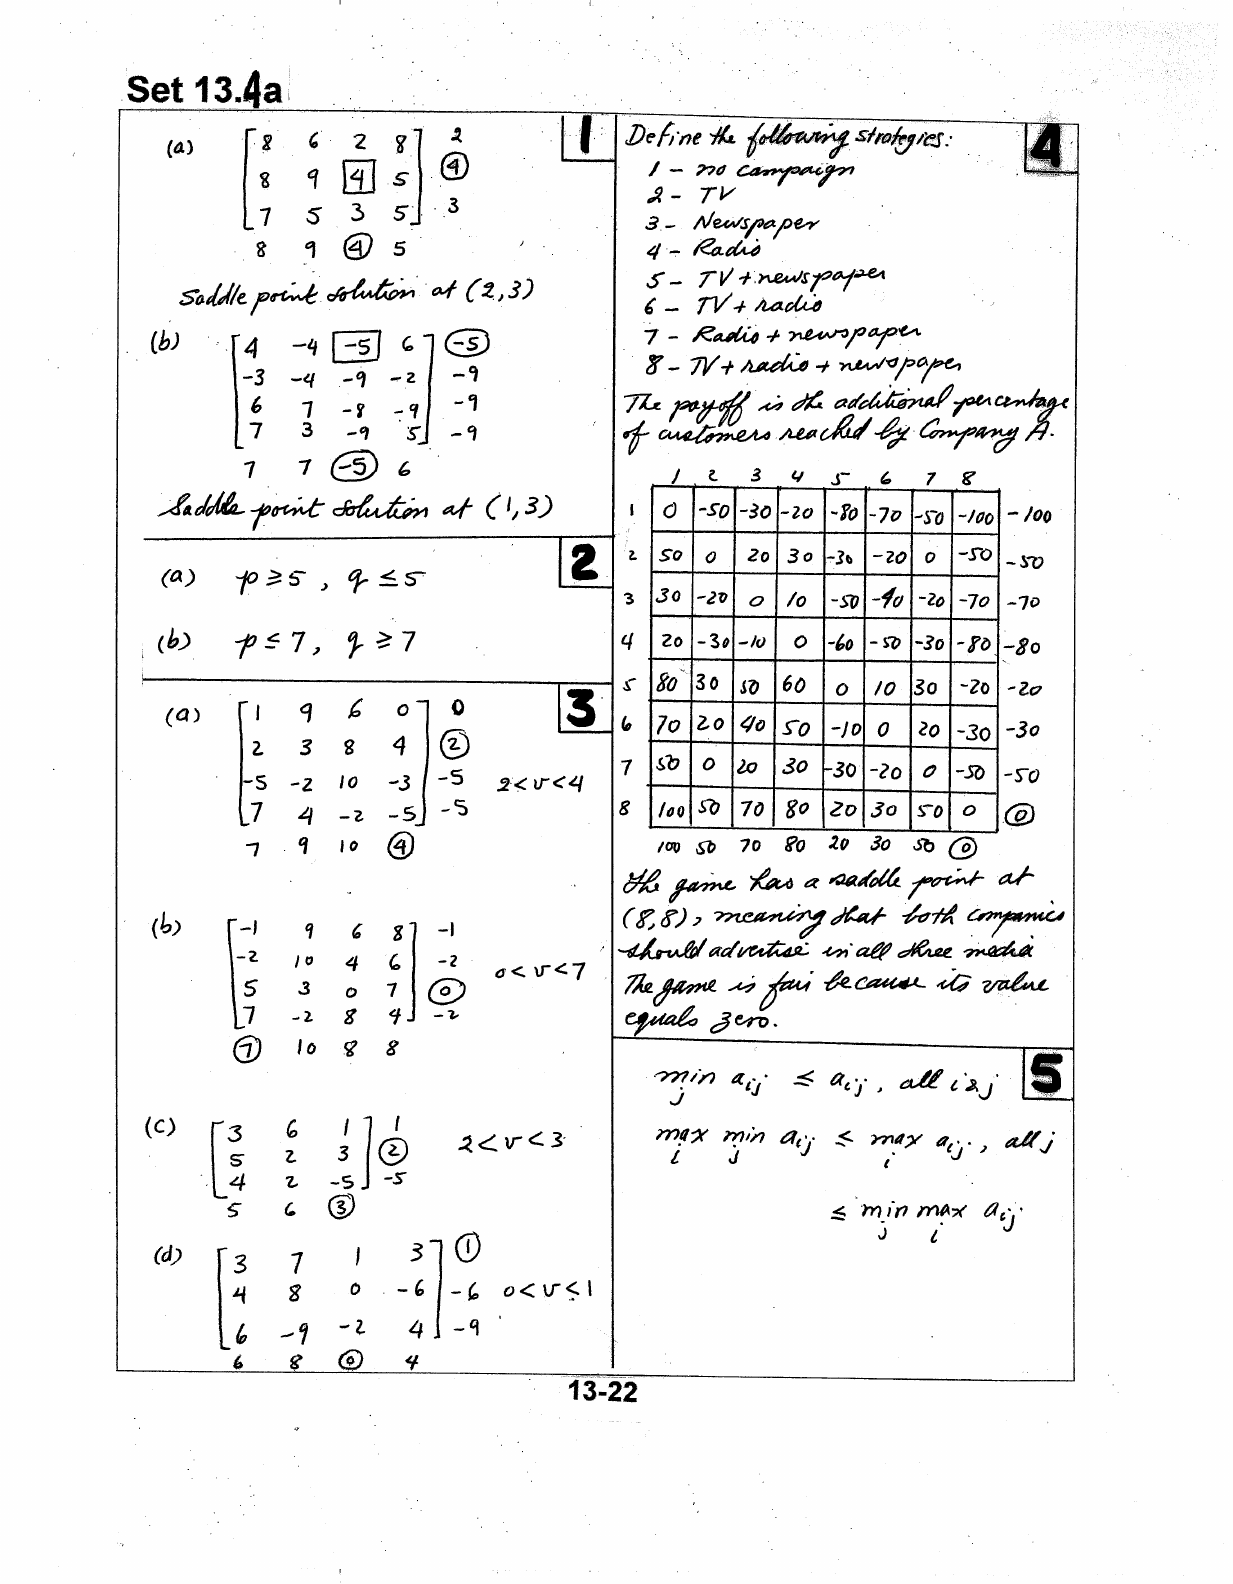 Set 13.4a
1
(a)
8 6 2 8 2
8 9 4 5 4
7 5 3 5 3
8 9 4 5
Saddle point solution at (2,3)
(b)
4 -4 -5 6 -5
-3 -4 -9 -2 -9
6 7 -8 -9 -9
7 3 -9 5 -9
7 7 -5 6
Saddle point solution at (1,3)
2
(a) p ≥ 5 , q ≤ 5
(b) p ≤ 7, q ≥ 7
3
(a)
1 9 6 0 0
2 3 8 4 2
-5 -2 10 -3 -5 2<v<4
7 4 -2 -5 -5
7 9 10 4
(b)
-1 9 6 8 -1
-2 10 4 6 -2 0<v<7
5 3 0 7 0
7 -2 8 4 -2
7 10 8 8
(c)
3 6 1 1
5 2 3 2 2<v<3
4 2 -5 -5
5 6 3
(d)
3 7 1 3 1
4 8 0 -6 -6 0<v≤1
6 -9 -2 4 -9
6 8 0 4
4
Define the following strategies:
1 - no campaign
2 - TV
3 - Newspaper
4 - Radio
5 - TV + newspaper
6 - TV + radio
7 - Radio + newspaper
8 - TV + radio + newspaper
The payoff is the additional percentage
of customers reached by Company A.
1 2 3 4 5 6 7 8
1 0 -50 -30 -20 -80 -70 -50 -100 -100
2 50 0 20 30 -30 -20 0 -50 -50
3 30 -20 0 10 -50 -40 -20 -70 -70
4 20 -30 -10 0 -60 -50 -30 -80 -80
5 80 30 50 60 0 10 30 -20 -20
6 70 20 40 50 -10 0 20 -30 -30
7 50 0 20 30 -30 -20 0 -50 -50
8 100 50 70 80 20 30 50 0 0
100 50 70 80 20 30 50 0
The game has a saddle point at
(8,8), meaning that both companies
should advertise in all three media
The game is fair because its value
equals zero.
5
min aij ≤ aij , all i & j
j
max min aij ≤ max aij , all j
i j i
≤ min max aij
j i
13-22